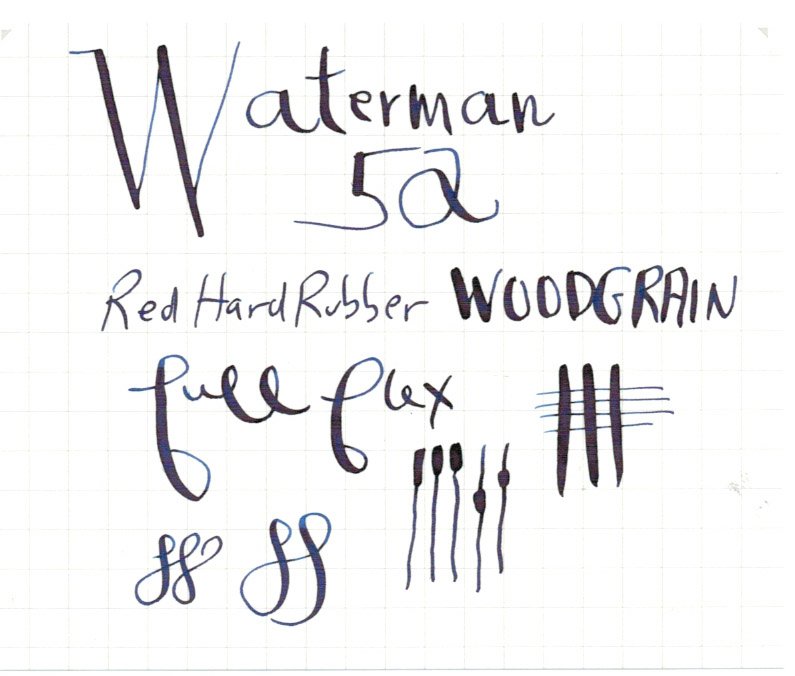 Waterman
52
Red Hard Rubber WOODGRAIN
full flex